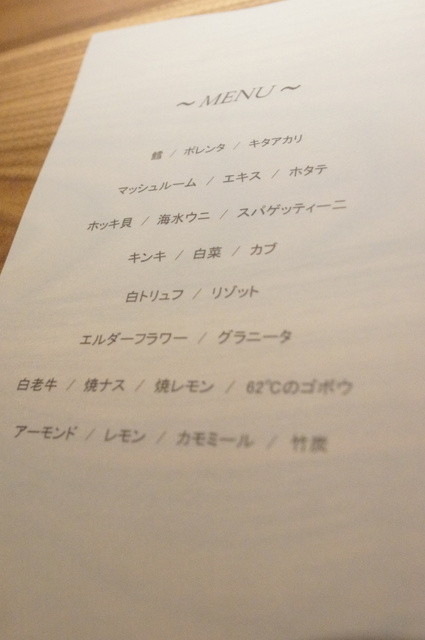 ～ MENU ～
鱈 / ポレンタ / キタアカリ
マッシュルーム / エキス / ホタテ
ホッキ貝 / 海水ウニ / スパゲッティーニ
キンキ / 白菜 / カブ
白トリュフ / リゾット
エルダーフラワー / グラニータ
白老牛 / 焼ナス / 焼レモン / 62℃のゴボウ
アーモンド / レモン / カモミール / 竹炭